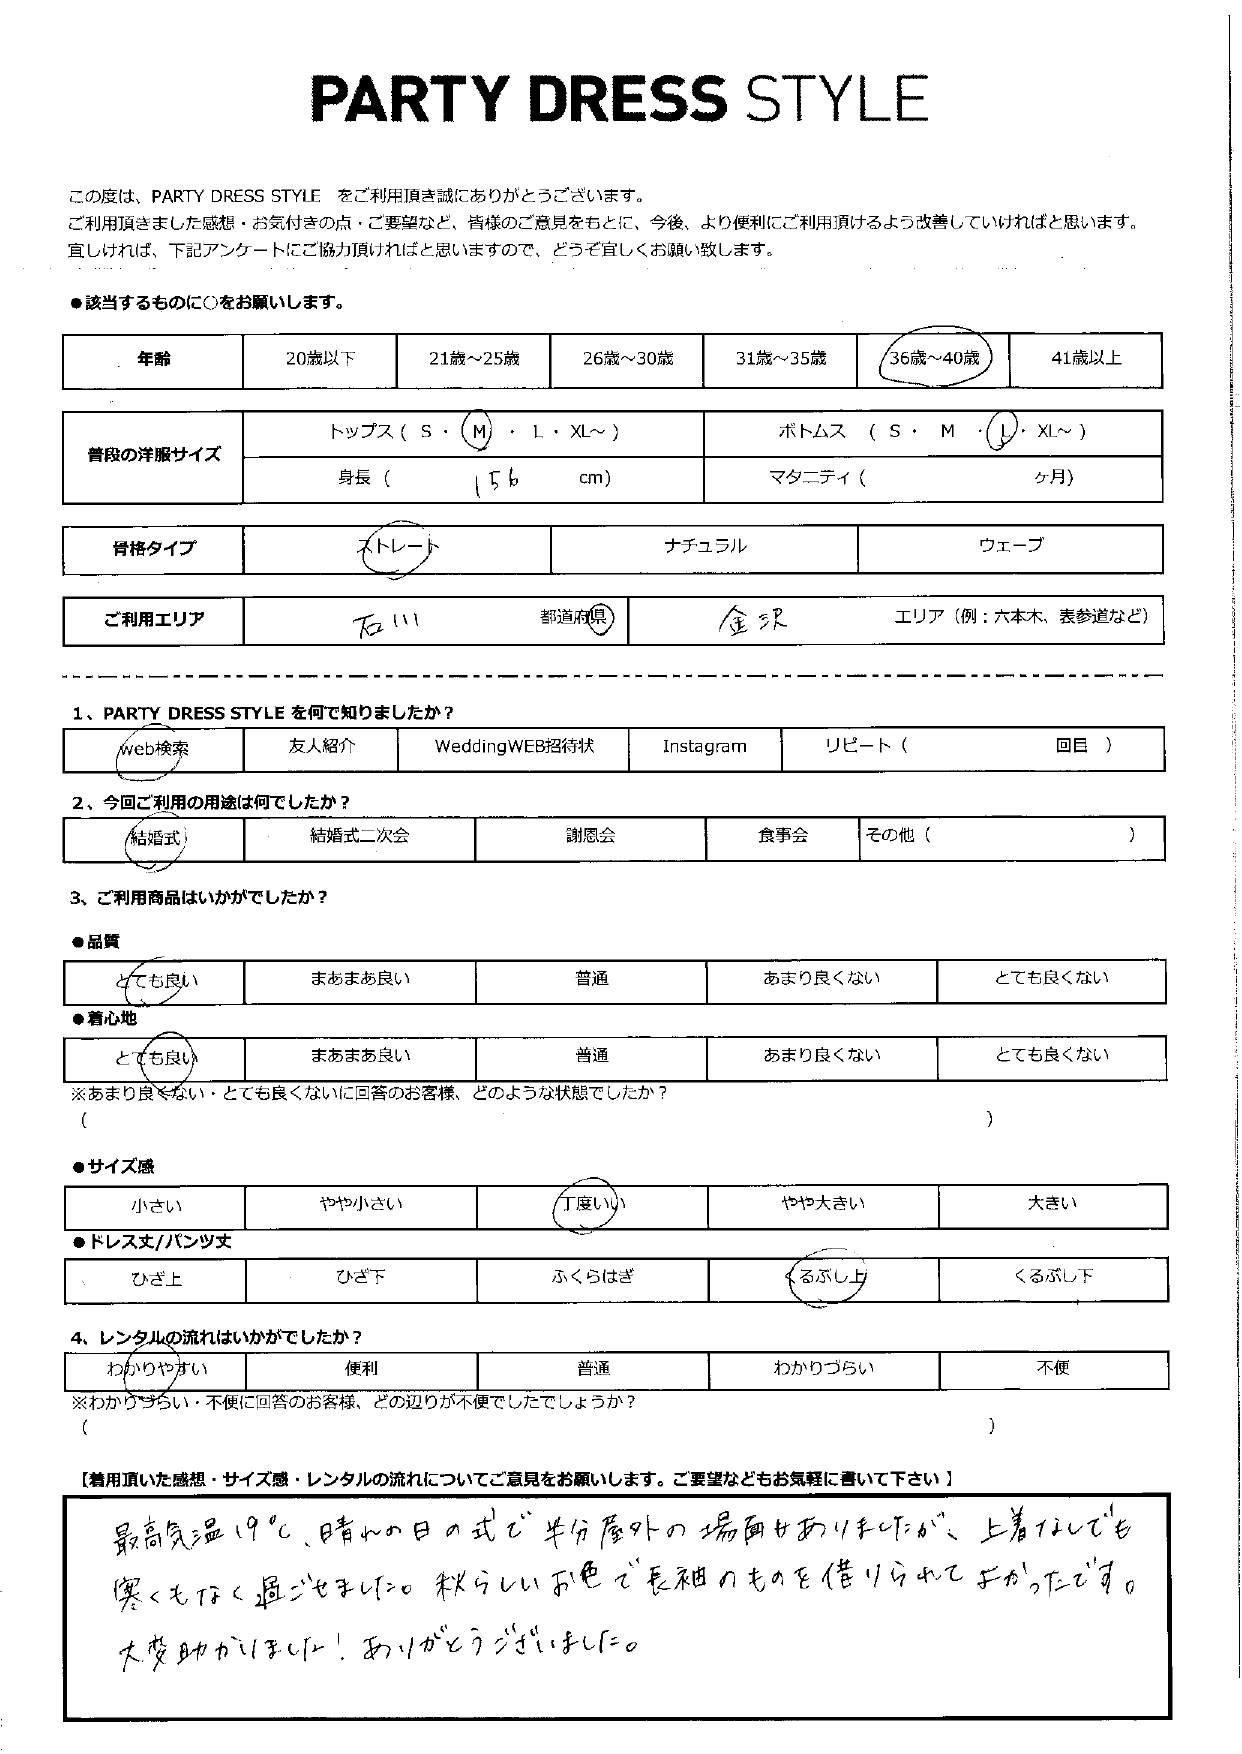 PARTY DRESS STYLE
この度は、PARTY DRESS STYLE をご利用頂き誠にありがとうございます。
ご利用頂きました感想・お気付きの点・ご要望など、皆様のご意見をもとに、今後、より便利にご利用頂けるよう改善していければと思います。
宜しければ、下記アンケートにご協力頂ければと思いますので、どうぞ宜しくお願い致します。
●該当するものに○をお願いします。
年齢 20歳以下 21歳～25歳 26歳～30歳 31歳～35歳 36歳～40歳 41歳以上
普段の洋服サイズ トップス ( S ・ M ・ L ・ XL～ ) ボトムス ( S ・ M ・ L ・ XL～ )
身長 ( 156 cm) マタニティ ( ヶ月)
骨格タイプ ストレート ナチュラル ウェーブ
ご利用エリア 石川 都道府県 金沢 エリア（例：六本木、表参道など）
1、PARTY DRESS STYLE を何で知りましたか？
web検索 友人紹介 WeddingWEB招待状 Instagram リピート ( 回目 )
2、今回ご利用の用途は何でしたか？
結婚式 結婚式二次会 謝恩会 食事会 その他 ( )
3、ご利用商品はいかがでしたか？
●品質
とても良い まあまあ良い 普通 あまり良くない とても良くない
●着心地
とても良い まあまあ良い 普通 あまり良くない とても良くない
※あまり良くない・とても良くないに回答のお客様、どのような状態でしたか？
( )
●サイズ感
小さい やや小さい 丁度いい やや大きい 大きい
●ドレス丈/パンツ丈
ひざ上 ひざ下 ふくらはぎ くるぶし上 くるぶし下
4、レンタルの流れはいかがでしたか？
わかりやすい 便利 普通 わかりづらい 不便
※わかりづらい・不便に回答のお客様、どの辺りが不便でしたでしょうか？
( )
【着用頂いた感想・サイズ感・レンタルの流れについてご意見をお願いします。ご要望などもお気軽に書いて下さい 】
最高気温19℃、晴れの日の式で半分屋外の場面もありましたが、上着なしでも
寒くもなく過ごせました。秋らしいお色で長袖のものを借りられてよかったです。
大変助かりました！ありがとうございました。